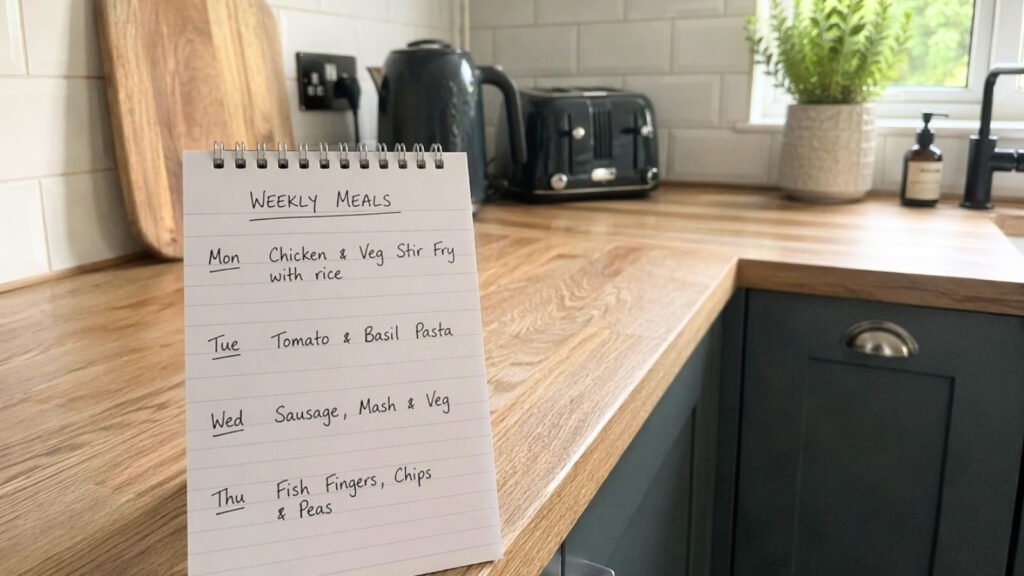 WEEKLY MEALS
Mon Chicken & Veg Stir Fry
with rice
Tue Tomato & Basil Pasta
Wed Sausage, Mash & Veg
Thu Fish Fingers, Chips
& Peas